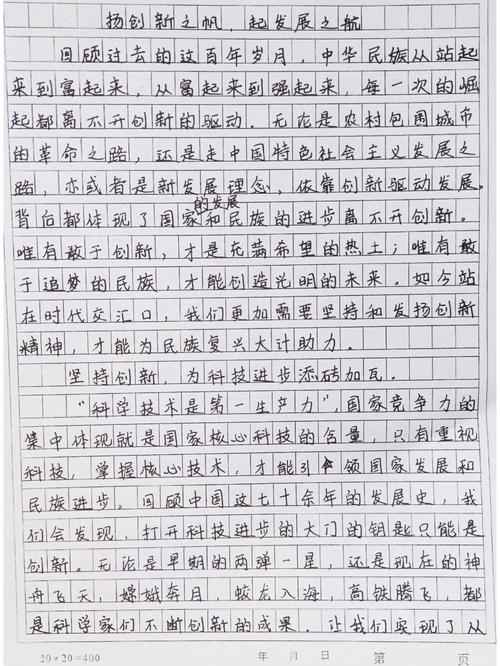 扬创新之帆，起发展之航
回顾过去的这百年岁月，中华民族从站起
来到富起来，从富起来到强起来，每一次的崛
起都离不开创新的驱动。无论是农村包围城市
的革命之路，还是走中国特色社会主义发展之
路，亦或者是新发展理念，依靠创新驱动发展。
的发展
背后都体现了国家和民族的进步离不开创新。
唯有敢于创新，才是充满希望的热土；唯有敢
于追梦的民族，才能创造光明的未来。如今站
在时代交汇口，我们更加需要坚持和发扬创新
精神，才能为民族复兴大计助力。
坚持创新，为科技进步添砖加瓦。
“科学技术是第一生产力”，国家竞争力的
集中体现就是国家核心科技的含量，只有重视
科技，掌握核心技术，才能引领国家发展和
民族进步。回顾中国这七十余年的发展史，我
们会发现，打开科技进步的大门的钥匙只能是
创新。无论是早期的两弹一星，还是现在的神
舟飞天，嫦娥奔月，蛟龙入海，高铁腾飞，都
是科学家们不断创新的成果。让我们实现了从
20×20=400 年 月 日 第 页